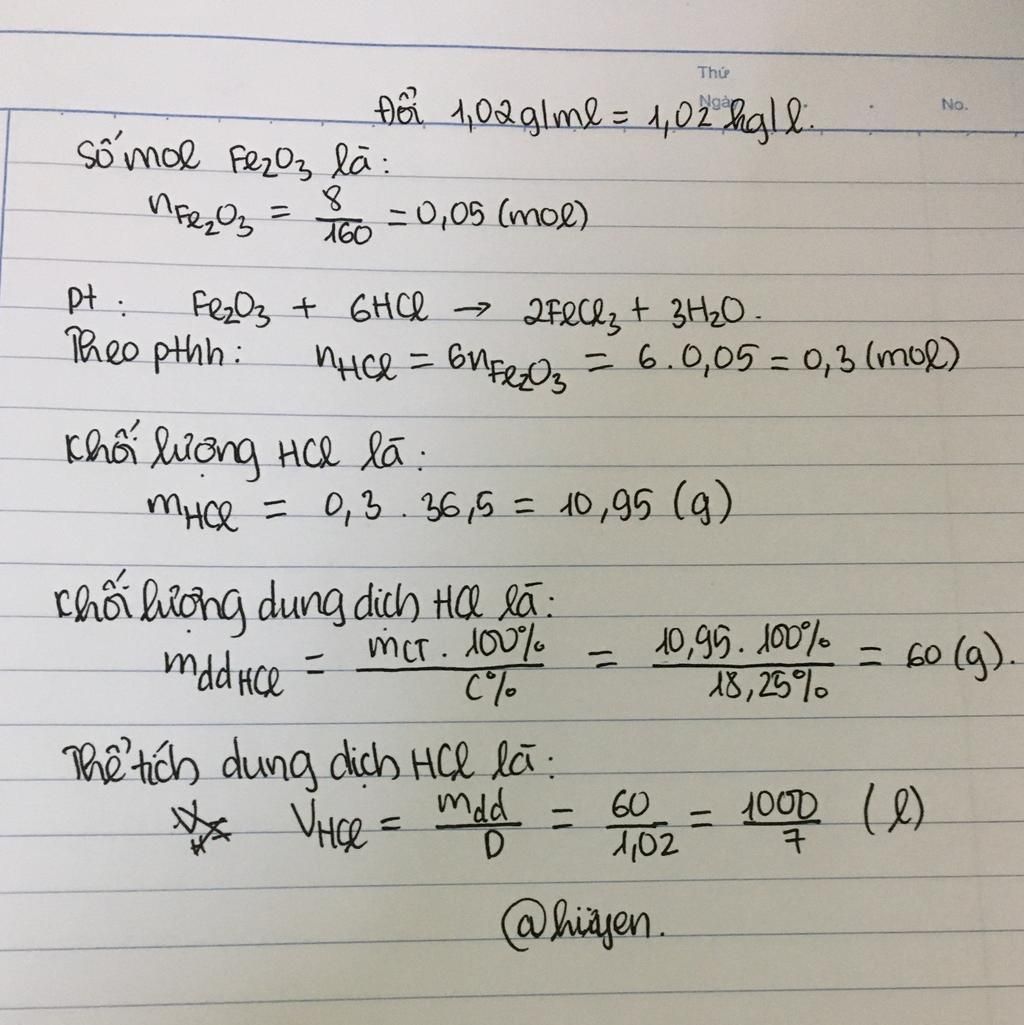 Thứ
Ngày
No.
Đổi 1,02g/ml = 1,02 kg/l.
Số mol Fe₂O₃ là:
nFe₂O₃ = 8/160 = 0,05 (mol)
Pt : Fe₂O₃ + 6HCl → 2FeCl₃ + 3H₂O.
Theo pthh: nHCl = 6nFe₂O₃ = 6 . 0,05 = 0,3 (mol)
Khối lượng HCl là:
mHCl = 0,3 . 36,5 = 10,95 (g)
Khối lượng dung dịch HCl là:
mddHCl = mCT . 100%/C% = 10,95 . 100%/18,25% = 60 (g).
Thể tích dung dịch HCl là:
VHCl = mdd/D = 60/1,02 = 1000/7 (l)